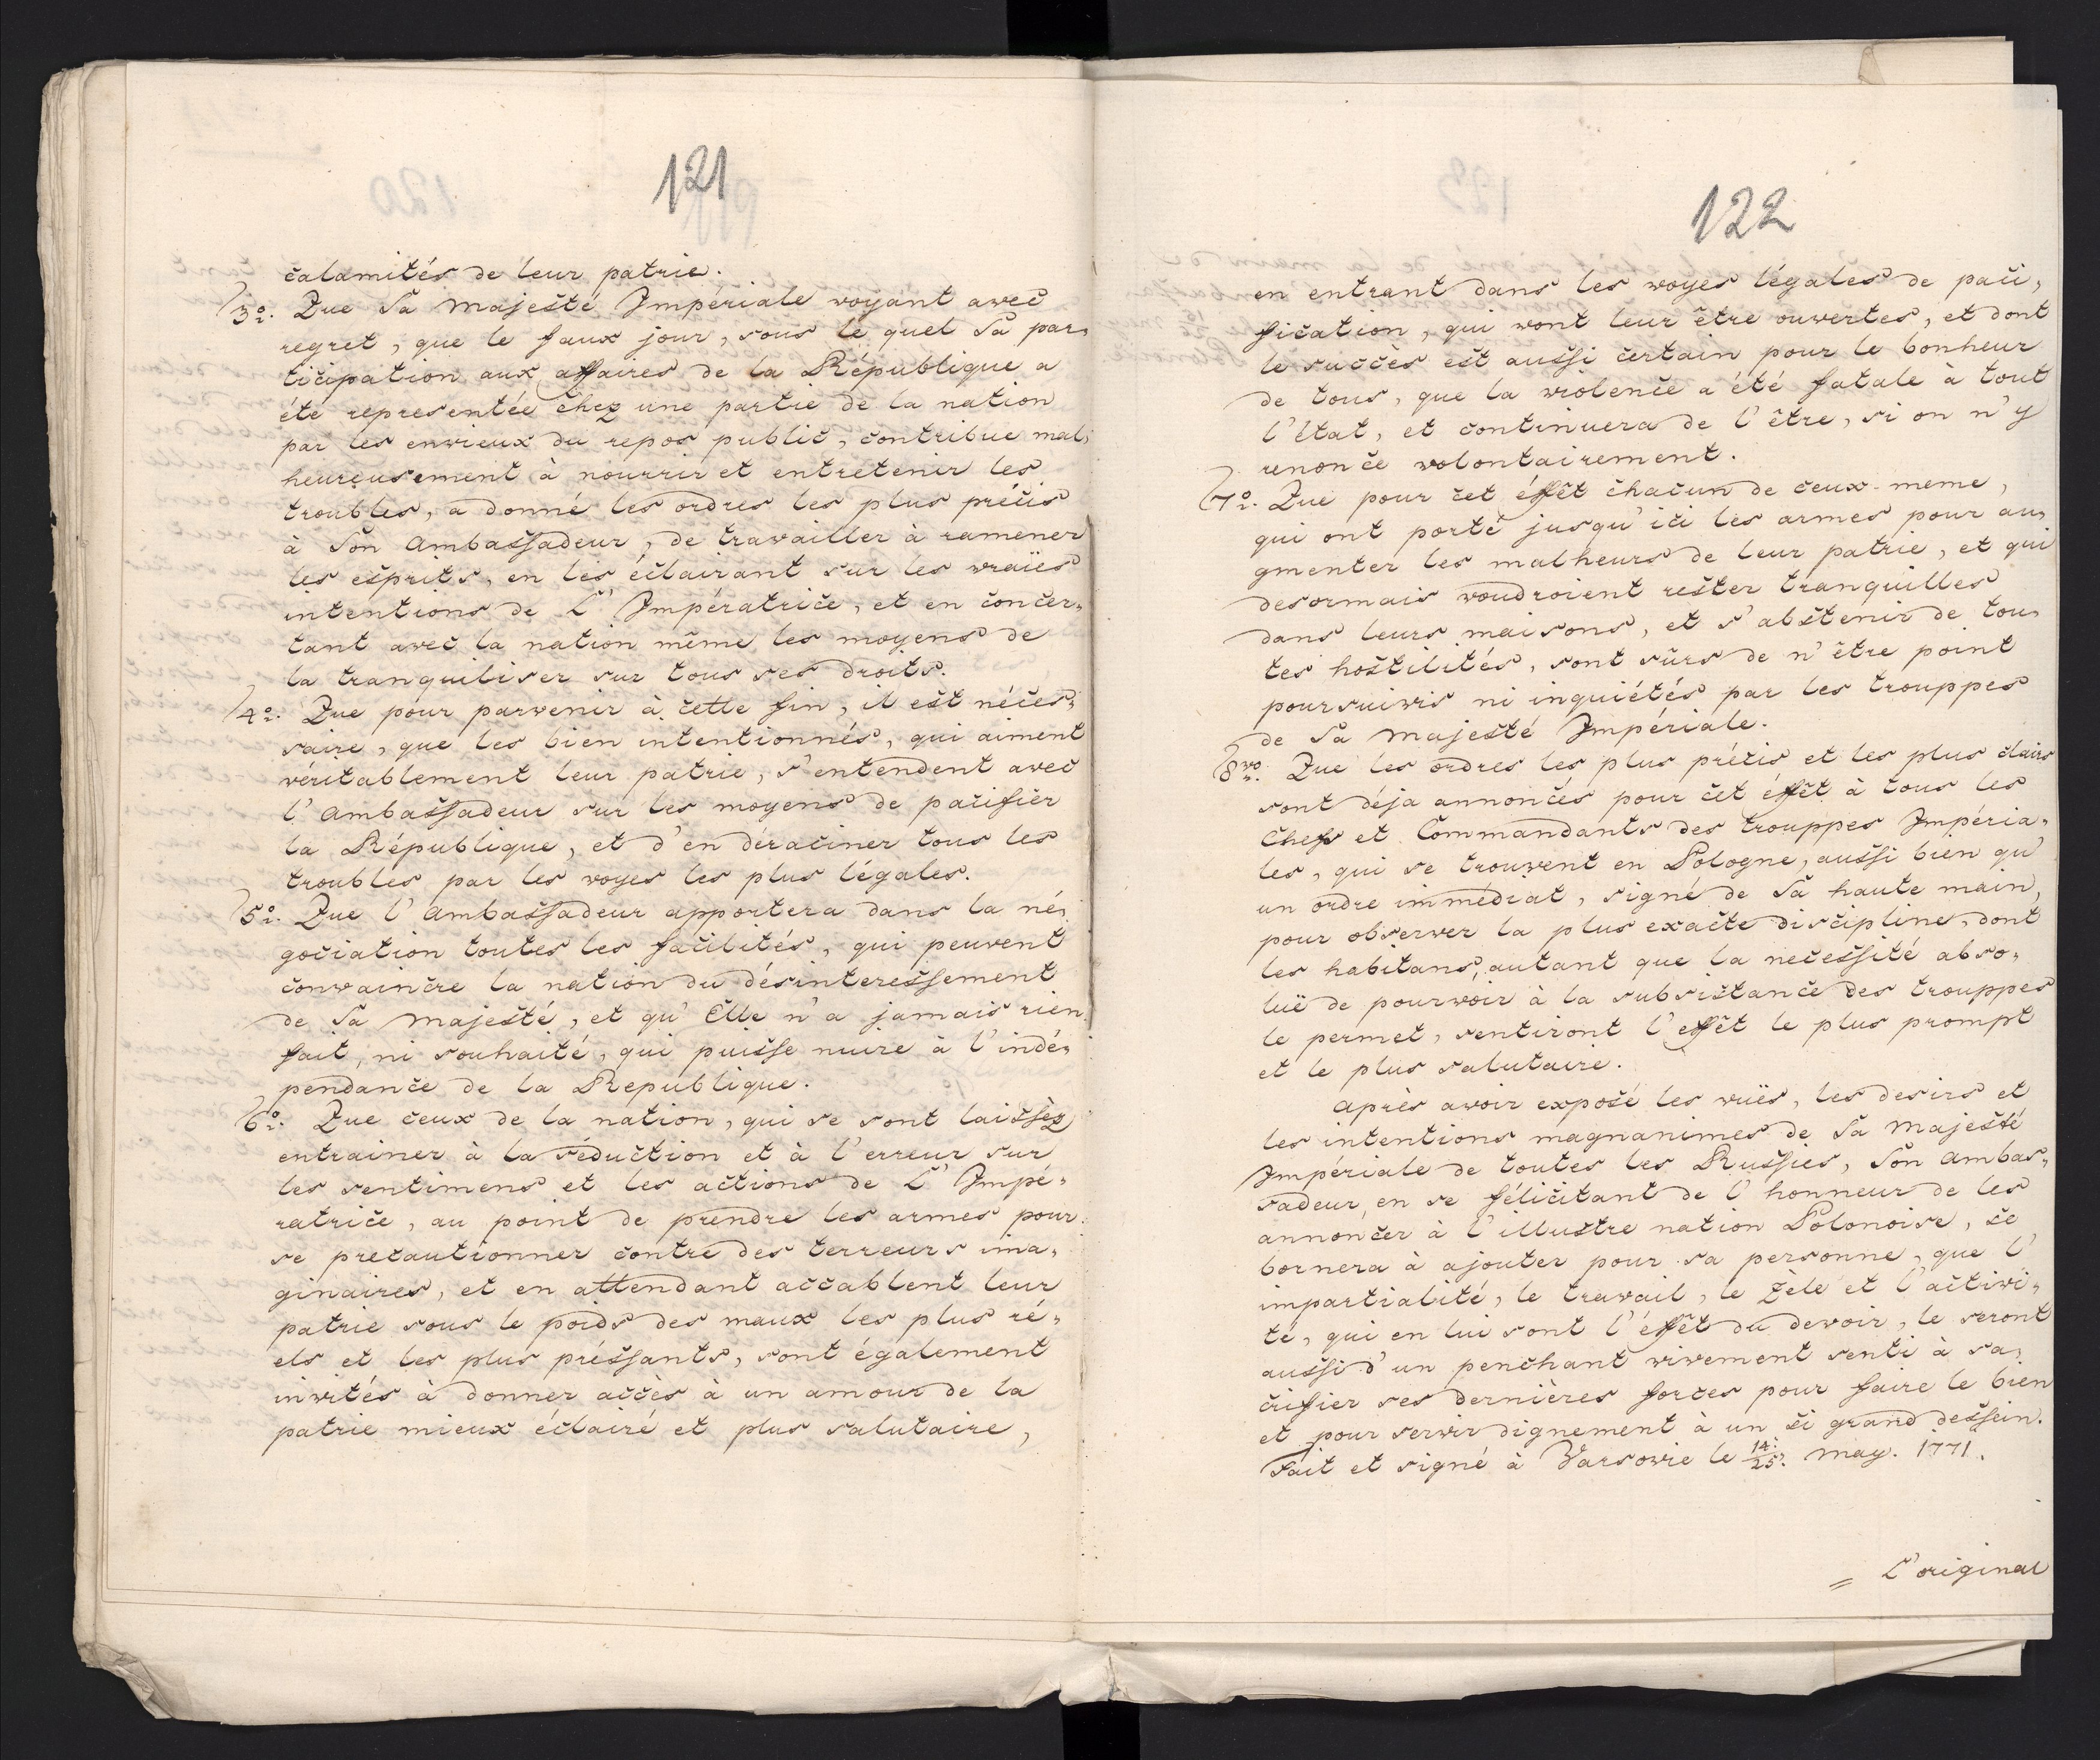 121
calamités de leur patrie.
3º. Que Sa Majesté Impériale voyant avec
regret, que le faux jour, sous le quel Sa par-
ticipation aux affaires de la République a
été representée chez une partie de la nation
par les envieux du repos public, contribue mal-
heureusement à nourrir et entretenir les
troubles, a donné les ordres les plus précis
à Son Ambassadeur, de travailler à ramener
les esprits, en les éclairant sur les vraïes
intentions de L'Impératrice, et en concer-
tant avec la nation même les moyens de
la tranquiliser sur tous ses droits.
4º. Que pour parvenir à cette fin, il est néces-
saire, que les bien intentionnés, qui aiment
véritablement leur patrie, s'entendent avec
l'Ambassadeur sur les moyens de pacifier
la République, et d'en déraciner tous les
troubles par les voyes les plus légales.
5º. Que l'Ambassadeur apportera dans la né-
gociation toutes les facilités, qui peuvent
convaincre la nation du désinteressement
de Sa Majesté, et qu'Elle n'a jamais rien
fait, ni souhaité, qui puisse nuire à l'indé-
pendance de la Republique.
6º. Que ceux de la nation, qui se sont laissèz
entrainer à la séduction et à l'erreur sur
les sentimens et les actions de L'Impé-
ratrice, au point de prendre les armes pour
se precautionner contre des terreurs ima-
ginaires, et en attendant accablent leur
patrie sous le poids des maux les plus ré-
els et les plus préssants, sont également
invités à donner accès à un amour de la
patrie mieux éclairé et plus salutaire,
122
en entrant dans les voyes légales de paci-
fication, qui vont leur être ouvertes, et dont
le succès est aussi certain pour le bonheur
de tous, que la violence a été fatale à tout
l'Etat, et continuera de l'être, si on n'y
renonce volontairement.
7º. Que pour cet éffêt chacun de ceux-meme,
qui ont porté jusqu'ici les armes pour au-
gmenter les malheurs de leur patrie, et qui
desormais voudroient rester tranquilles
dans leurs maisons, et s'abstenir de tou-
tes hostilités, sont sûrs de n'être point
poursuivis ni inquiétés par les trouppes
de Sa Majesté Impériale.
8vo. Que les ordres les plus précis et les plus clairs
sont déja annoncés pour cet éffêt à tous les
Chefs et Commandants des trouppes Impéria-
les, qui se trouvent en Pologne, aussi bien qu'
un ordre immédiat, signé de Sa haute main,
pour observer la plus exacte discipline, dont
les habitans, autant que la necessité abso-
luë de pourvoir à la subsistance des trouppes
le permet, sentiront l'effêt le plus prompt
et le plus salutaire.
Après avoir exposé les vuës, les desirs et
les intentions magnanimes de Sa Majesté
Impériale de toutes les Russies, Son Ambas-
sadeur, en se félicitant de l'honneur de les
annoncer à l'illustre nation Polonoise, se
bornera à ajouter pour sa personne, que l'
impartialité, le travail, le zèle et l'activi-
té, qui en lui sont l'éffêt du devoir, le seront
aussi d'un penchant vivement senti à sa-
crifier ses dernières forces pour faire le bien
et pour servir dignement à un si grand dessein.
Fait et signé à Varsovie le 14/25. May. 1771.
= L'original